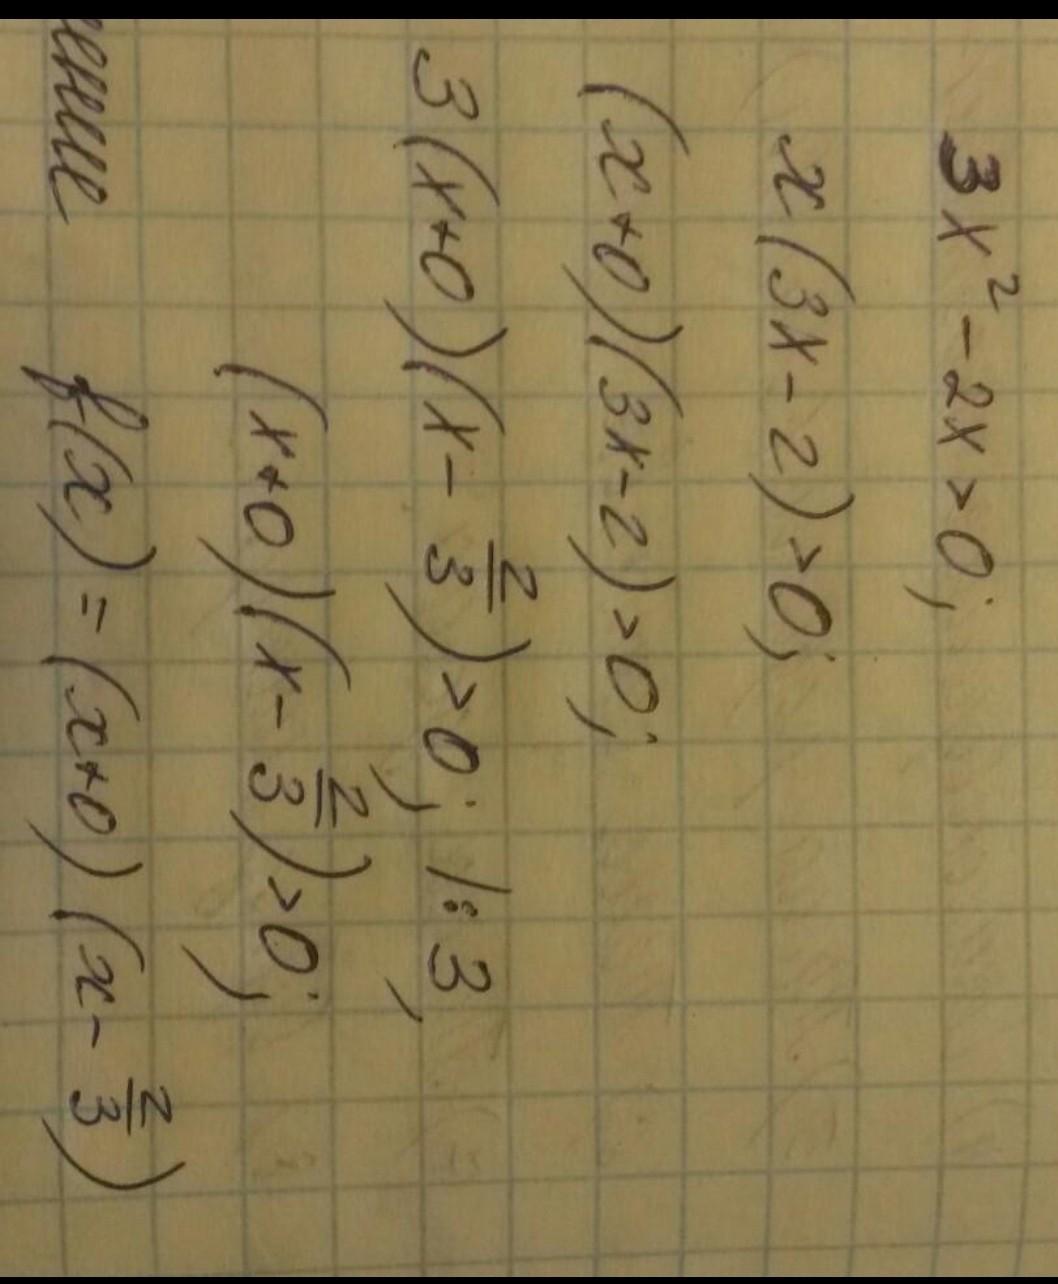 3x² - 2x > 0;
x(3x - 2) > 0;
(x+0)(3x-2) > 0;
3(x+0)(x - 2/3) > 0; |:3,
(x+0)(x - 2/3) > 0;
f(x) = (x+0)(x - 2/3)